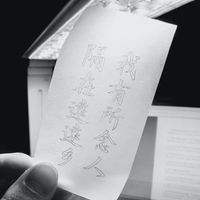 我有所念人
隔在遠遠鄉